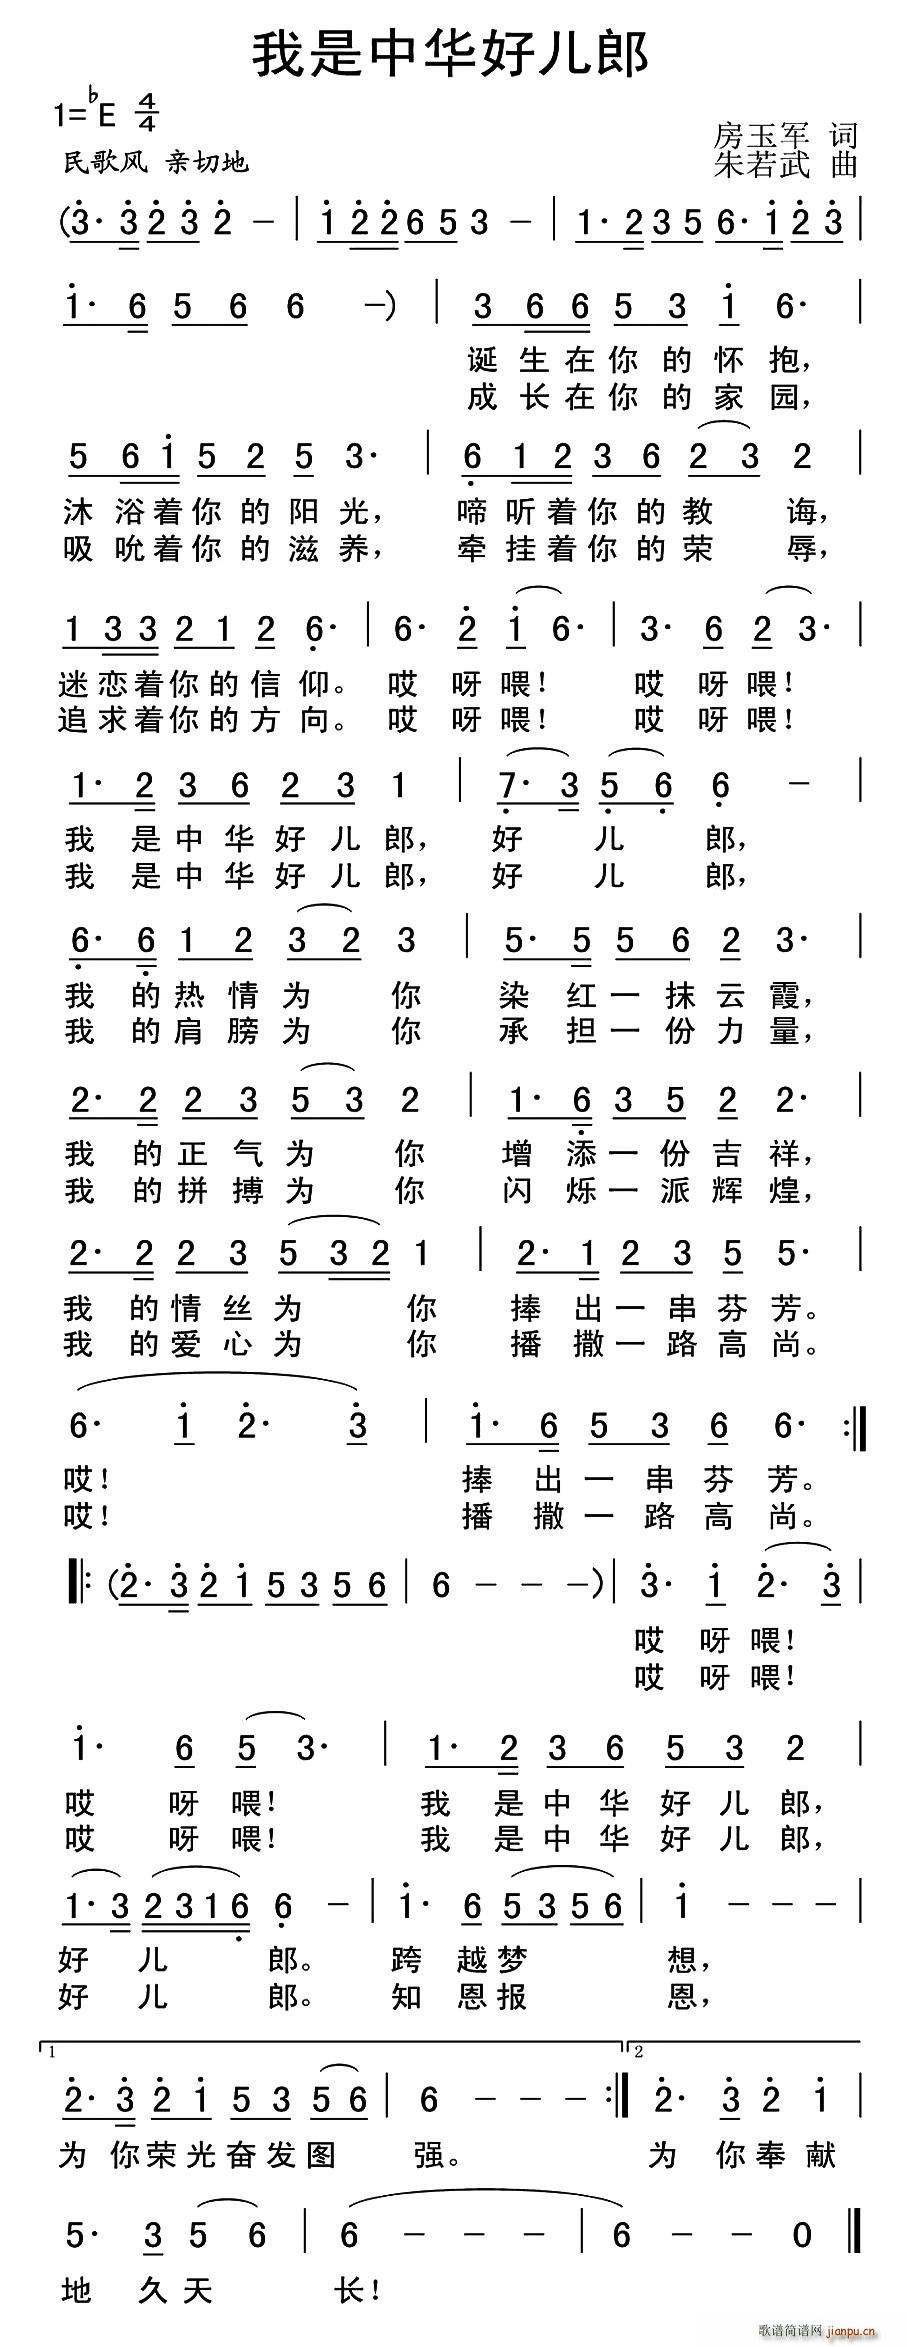 我是中华好儿郎
1=♭E 4/4
房玉军 词
民歌风 亲切地
朱若武 曲
(3· 3 2 3 2 - | 1 2 2 6 5 3 - | 1· 2 3 5 6· 1 2 3 |
1· 6 5 6 6 -) | 3 6 6 5 3 1 6· |
诞生在你的怀抱，
成长在你的家园，
5 6 1 5 2 5 3· | 6 1 2 3 6 2 3 2 |
沐浴着你的阳光， 啼听着你的教诲，
吸吮着你的滋养， 牵挂着你的荣辱，
1 3 3 2 1 2 6· | 6· 2 1 6· | 3· 6 2 3· |
迷恋着你的信仰。 哎呀喂！ 哎呀喂！
追求着你的方向。 哎呀喂！ 哎呀喂！
1· 2 3 6 2 3 1 | 7· 3 5 6 6 - |
我是中华好儿郎， 好儿郎，
我是中华好儿郎， 好儿郎，
6· 6 1 2 3 2 3 | 5· 5 5 6 2 3· |
我的热情为你 染红一抹云霞，
我的肩膀为你 承担一份力量，
2· 2 2 3 5 3 2 | 1· 6 3 5 2 2· |
我的正气为你 增添一份吉祥，
我的拼搏为你 闪烁一派辉煌，
2· 2 2 3 5 3 2 1 | 2· 1 2 3 5 5· |
我的情丝为你 捧出一串芬芳。
我的爱心为你 播撒一路高尚。
6· 1 2· 3 | 1· 6 5 3 6 6· :|
哎！ 捧出一串芬芳。
哎！ 播撒一路高尚。
|: (2· 3 2 1 5 3 5 6 | 6 - - -) | 3· 1 2· 3 |
哎呀喂！
哎呀喂！
1· 6 5 3· | 1· 2 3 6 5 3 2 |
哎呀喂！ 我是中华好儿郎，
哎呀喂！ 我是中华好儿郎，
1· 3 2 3 1 6 6 - | 1· 6 5 3 5 6 | 1 - - - |
好儿郎。 跨越梦想，
好儿郎。 知恩报恩，
1 2
2· 3 2 1 5 3 5 6 | 6 - - - :| 2· 3 2 1 |
为你荣光奋发图强。 为你奉献
5· 3 5 6 | 6 - - - | 6 - - 0 ‖
地久天长！
歌谱简谱网 jianpu.cn